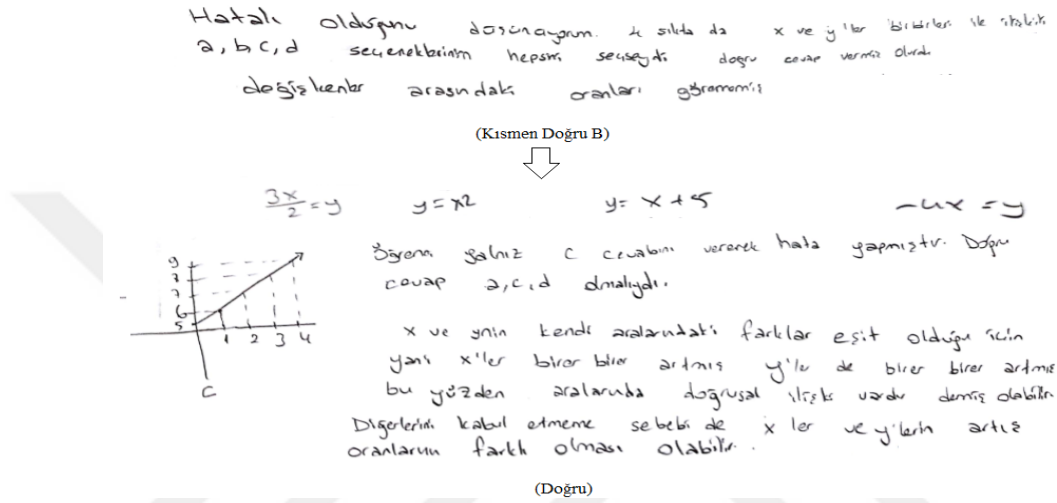 Hatalı olduğunu düşünüyorum. 4 şıkta da x ve y'ler birbirleri ile ilişkili
a, b c, d seçeneklerinin hepsini seçseydi doğru cevap vermiş olurdu
değişkenler arasındaki oranları görememiş
(Kısmen Doğru B)
3x/2 = y y = x2 y = x + 5 -4x = y
Öğrenci yalnız C cevabını vererek hata yapmıştır. Doğru
cevap a, c, d olmalıydı.
9
8
7
6
5
1 2 3 4
C
x ve ynin kendi aralarındaki farklar eşit olduğu için
yani x'ler birer birer artmış y'ler de birer birer artmış
bu yüzden aralarında doğrusal ilişki vardır demiş olabilir.
Diğerlerini kabul etmeme sebebi de x ler ve y'lerin artış
oranlarının farklı olması olabilir.
(Doğru)